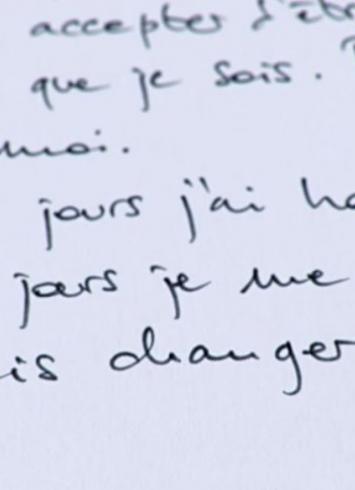 accepter d'êtr
que je sois.
moi.
jours j'ai ho
jours je me
is changer